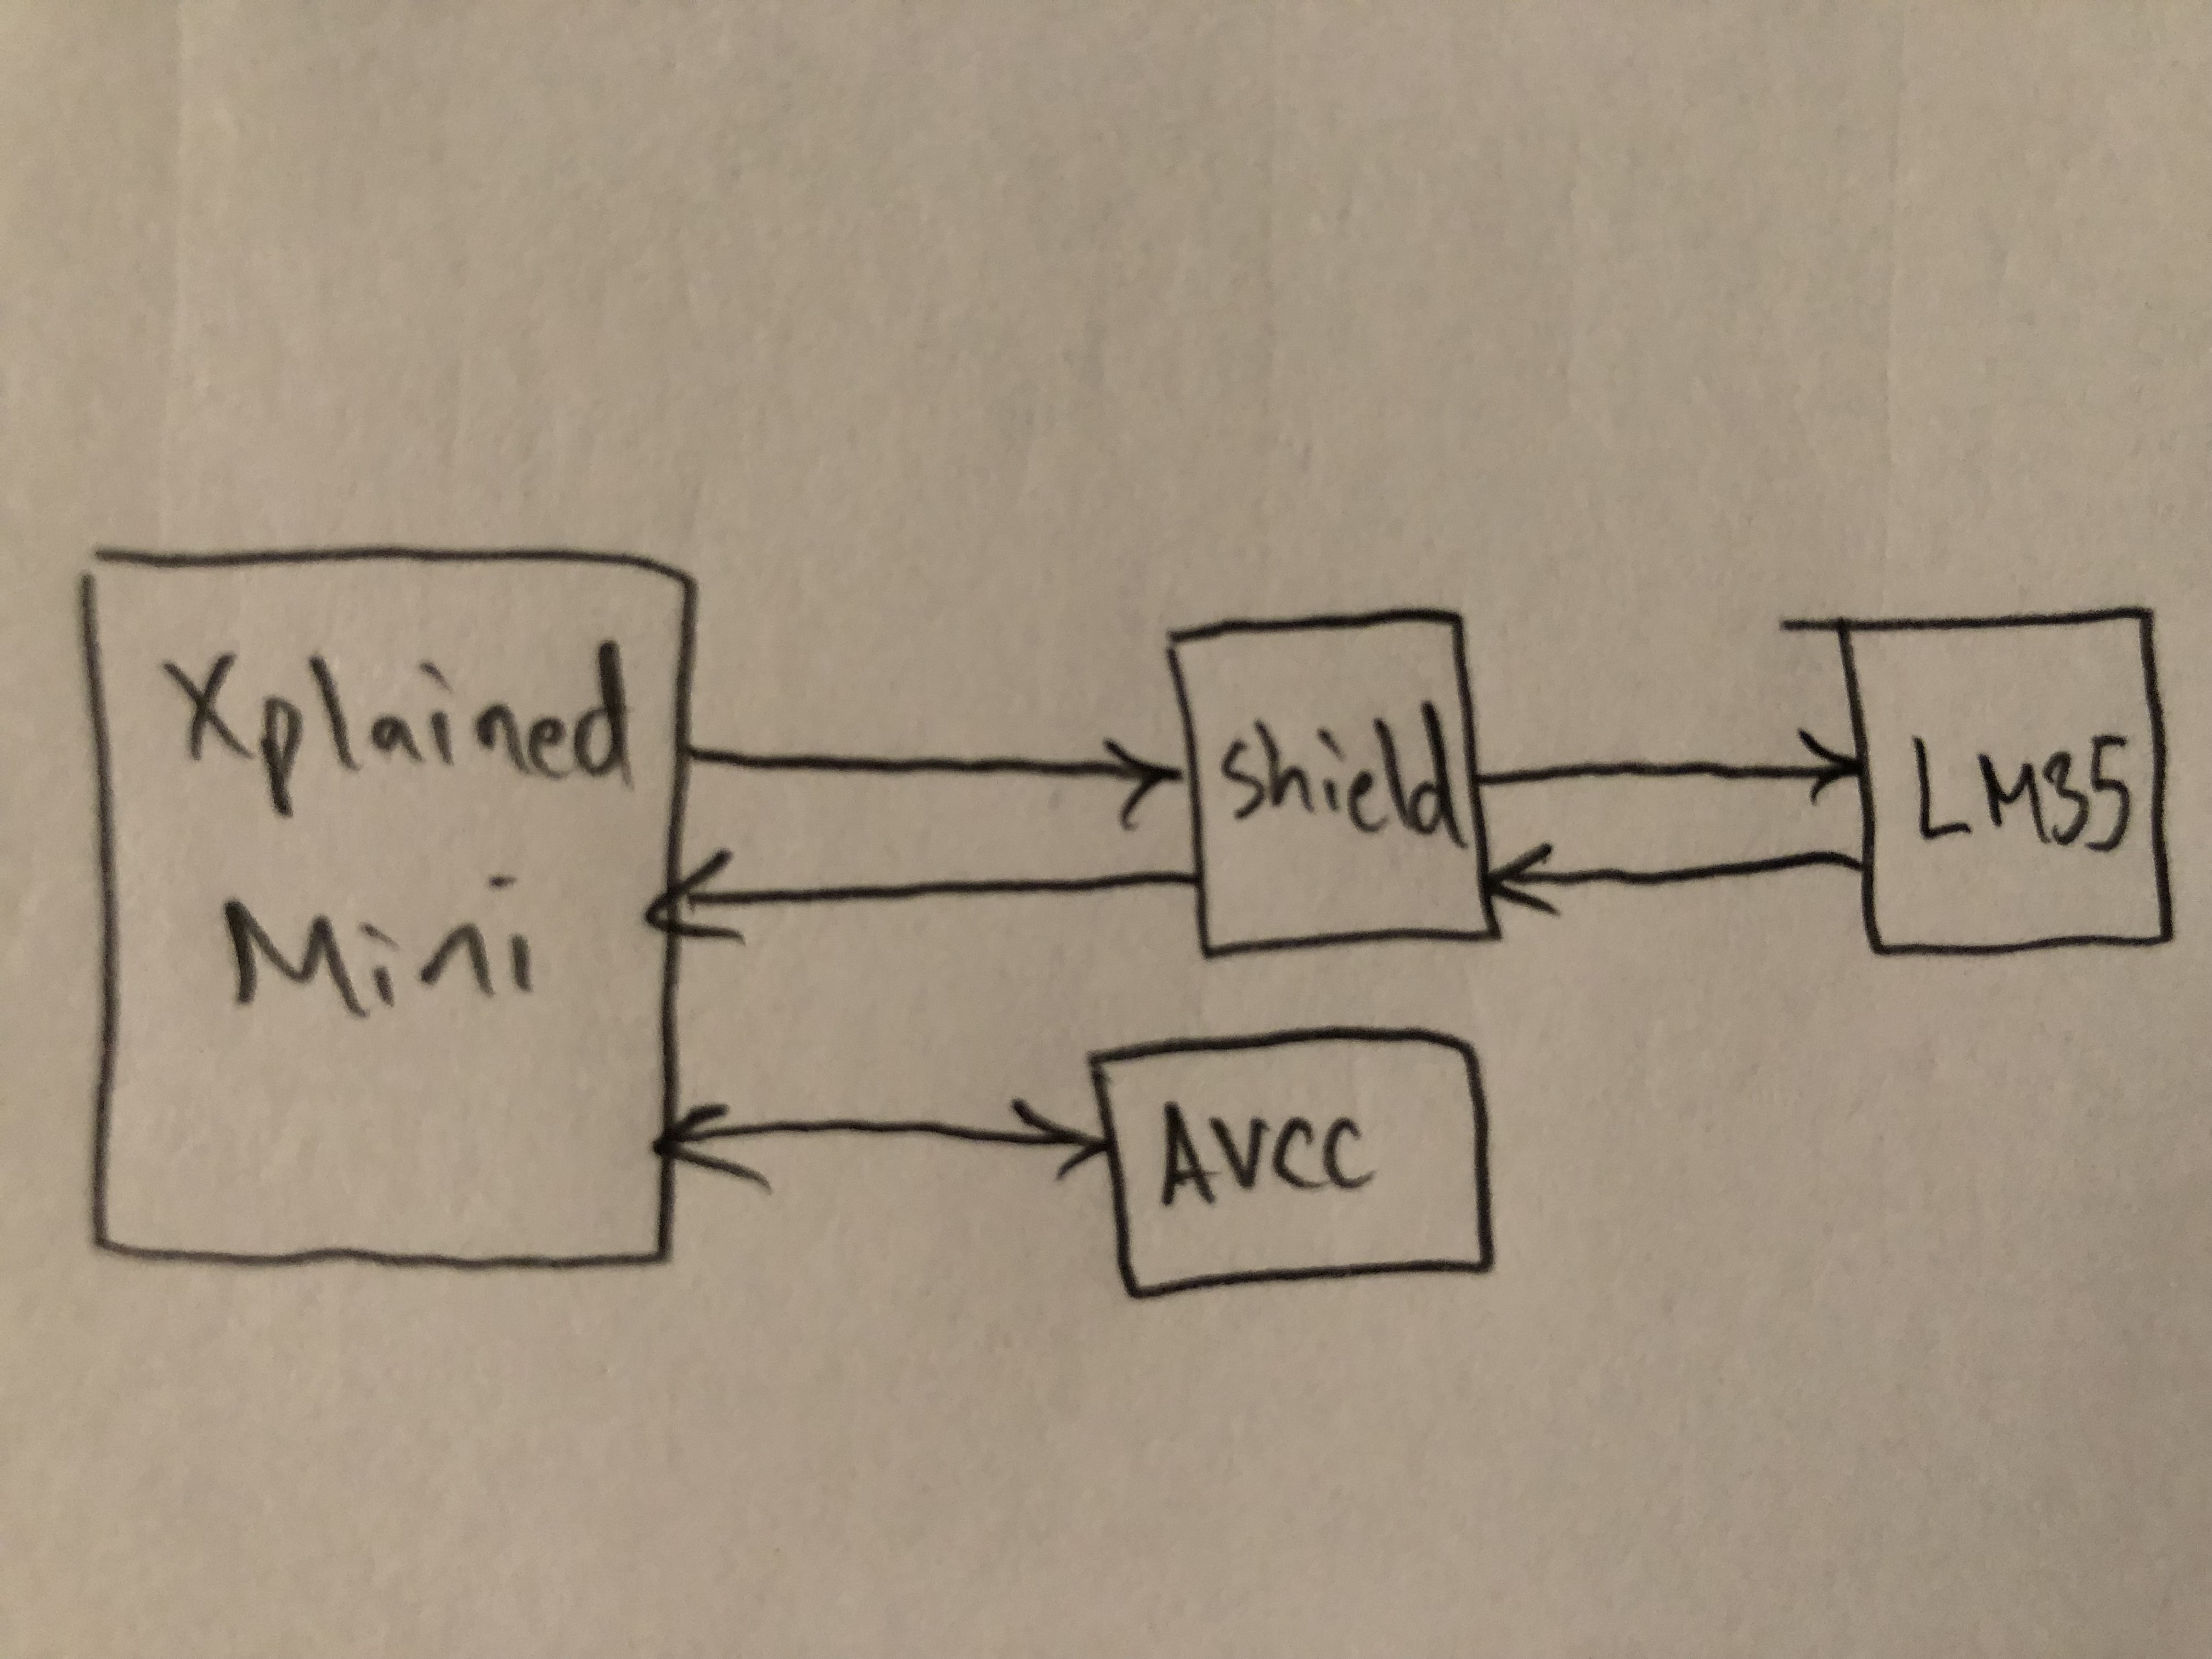 Xplained
Mini
Shield
LM35
AVCC